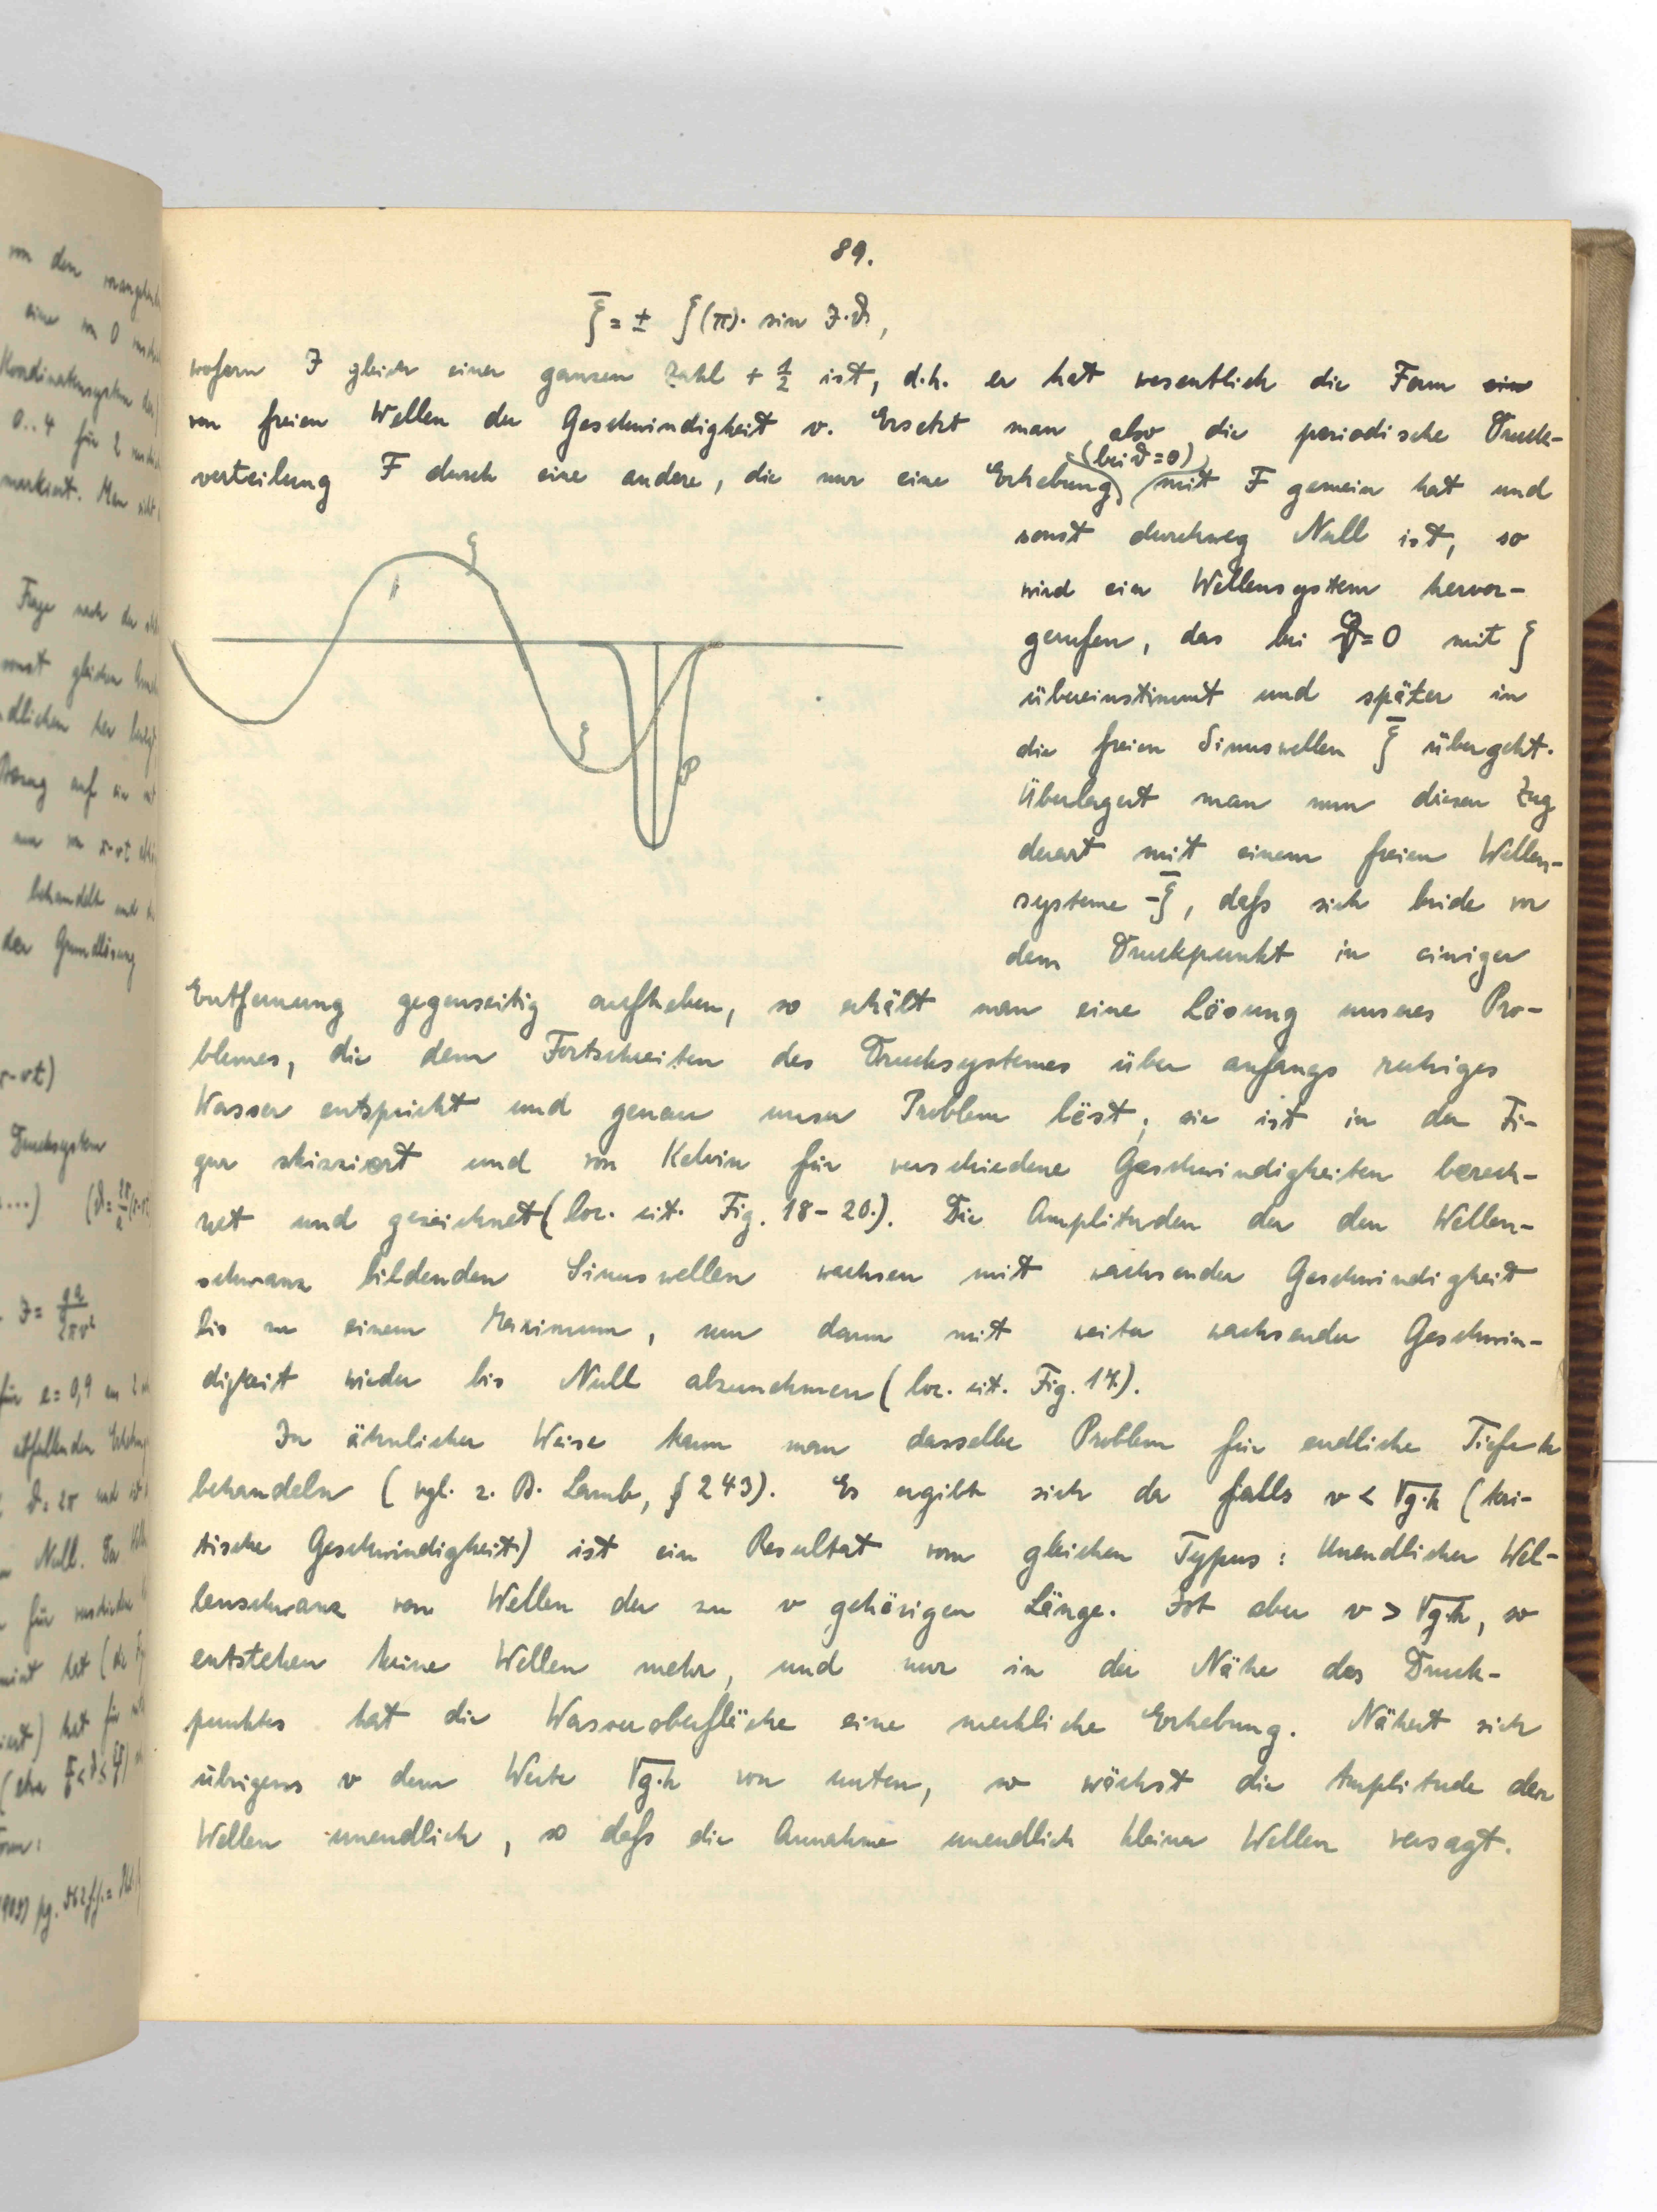 89.
ξ̄ = ± ξ(π)· sin J·ϑ,
wofern J gleich einer ganzen Zahl + 1/2 ist, d.h. er hat wesentlich die Form ein
von freien Wellen der Geschwindigkeit v. Ersetzt man also die periodische Druck-
(bei ϑ=0)
verteilung F durch eine andere, die nur eine Erhebung mit F gemein hat und
sonst durchweg Null ist, so
wird ein Wellensystem hervor-
gerufen, das bei ϑ=0 mit ξ
übereinstimmt und später in
die freien Sinuswellen ξ̄ übergeht.
Überlagert man nun diesen Zug
derart mit einem freien Wellen-
systeme -ξ̄, daſs sich beide vor
dem Druckpunkt in einiger
ξ
ξ
P
Entfernung gegenseitig aufheben, so erhält man eine Lösung unseres Pro-
blemes, die dem Fortschreiten des Drucksystemes über anfangs ruhiges
Wasser entspricht und genau unser Problem löst; sie ist in der Fi-
gur skizziert und von Kelvin für verschiedene Geschwindigkeiten berech-
net und gezeichnet (loc. cit. Fig. 18-20.). Die Amplituden der den Wellen-
schwanz bildenden Sinuswellen wachsen mit wachsender Geschwindigkeit
bis zu einem Maximum, um dann mit weiter wachsender Geschwin-
digkeit wieder bis Null abzunehmen (loc. cit. Fig. 17.).
In ähnlicher Weise kann man dasselbe Problem für endliche Tiefe h
behandeln (vgl. z. B. Lamb, § 243). Es ergibt sich da falls v < √g·h (kri-
tische Geschwindigkeit) ist ein Resultat vom gleichen Typus: Unendlicher Wel-
lenschwanz von Wellen der zu v gehörigen Länge. Ist aber v > √g·h, so
entstehen keine Wellen mehr, und nur in der Nähe des Druck-
punktes hat die Wasseroberfläche eine merkliche Erhebung. Nähert sich
übrigens v dem Werte √g·h von unten, so wächst die Amplitude der
Wellen unendlich, so daſs die Annahme unendlich kleiner Wellen versagt.